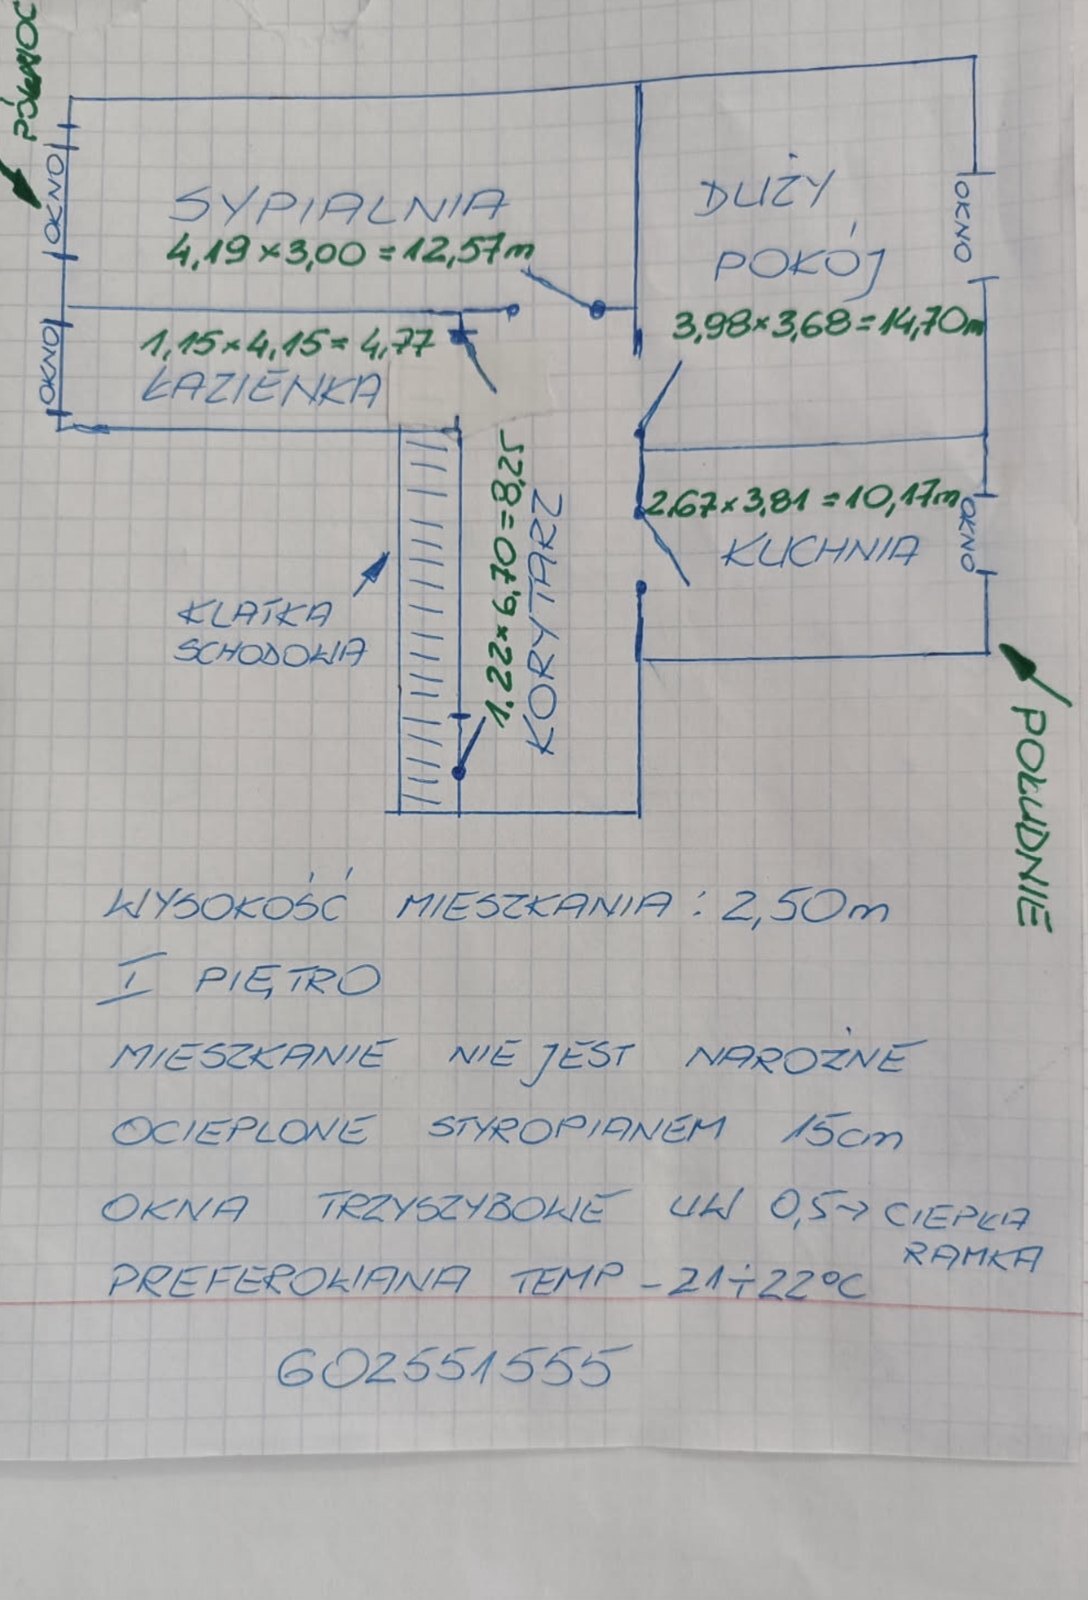 PÓŁNOC
OKNO
SYPIALNIA
4,19 × 3,00 = 12,57m
DUŻY
POKÓJ
3,98 × 3,68 = 14,70m
OKNO
OKNO
1,15 × 4,15 = 4,77
ŁAZIENKA
2,67 × 3,81 = 10,17m
KUCHNIA
OKNO
1.22 × 6,70 = 8,25
KORYTARZ
KLATKA
SCHODOWA
POŁUDNIE
WYSOKOŚĆ MIESZKANIA : 2,50m
I PIĘTRO
MIESZKANIE NIE JEST NAROŻNE
OCIEPLONE STYROPIANEM 15cm
OKNA TRZYSZYBOWE UW 0,5 → CIEPŁA
RAMKA
PREFEROWANA TEMP - 21÷22°C
602551555